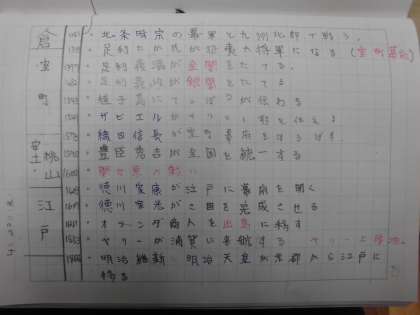 倉 1281・北条時宗の幕軍と九州北部で戦う。
1338・足利たか氏が征夷大将軍になる(室町幕府)
室 1397・足利義満が金閣をたてる。
足利義政が銀閣をたてる
町 1543・種子島にてっぽうが伝わる
1549・ザビエルがキリスト教を伝える
1573・織田信長が室町幕府をほろぼす
安土 桃山 1590・豊臣秀吉が全国を統一する
1600・関ヶ原の戦い
1603・徳川家康が江戸に幕府を開く
江 徳川家光がさ国を完成させる
1641・オランダ商人を出島に移す
戸 1853・ペリーが浦賀に来航する
1868・明治維新・明治天皇が京都から江戸に
移る